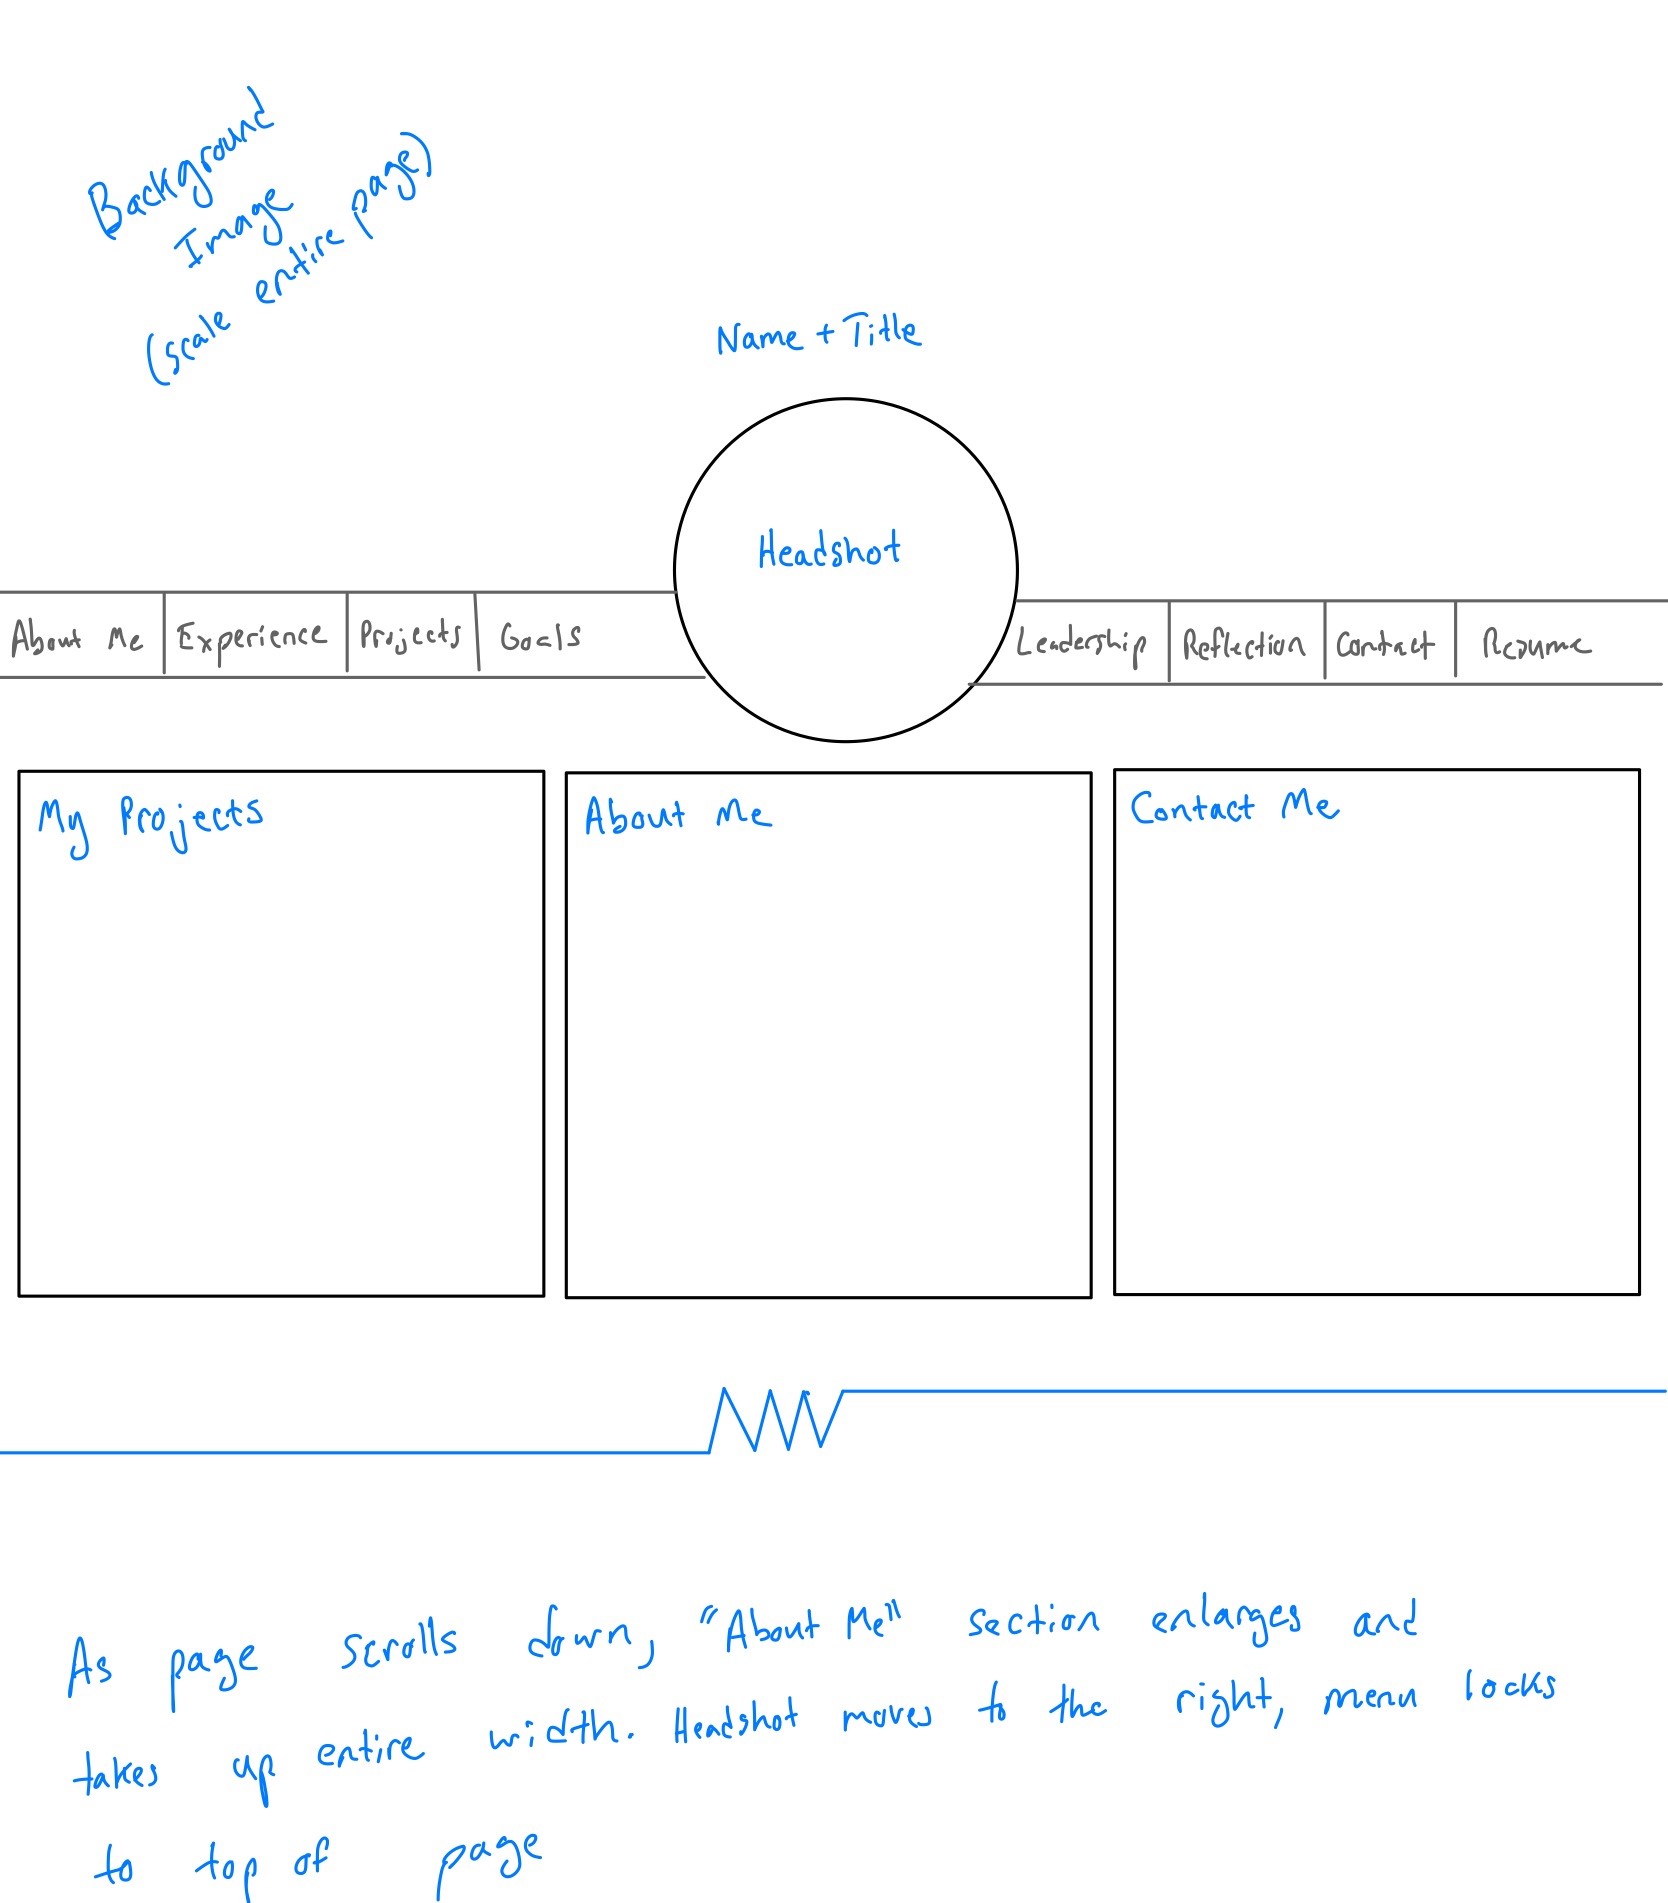 Background
Image
(scale entire page)
Name + Title
Headshot
About Me Experience Projects Goals Leadership Reflection Contact Resume
My Projects About Me Contact Me
As page scrolls down, "About Me" section enlarges and
takes up entire width. Headshot moves to the right, menu locks
to top of page